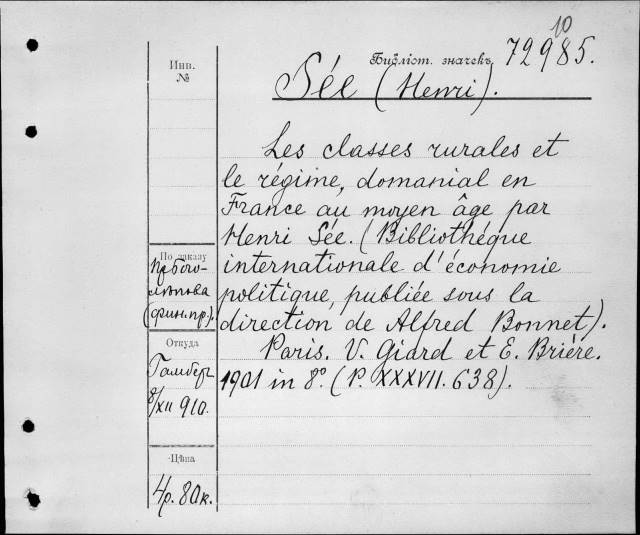 10
Библіот. значекъ 72985.
Инв.
№
Sée (Henri).
Les classes rurales et
le régime, domanial en
France au moyen âge par
Henri Sée. (Bibliothéque
internationale d'économie
politique, publiée sous la
direction de Alfred Bonnet).
Paris. V. Giard et E. Brière.
1901 in 8º. (P. XXXVII. 638).
По заказу
(фин.пр.).
Откуда
8/XII 910.
Цѣна
4р. 80к.